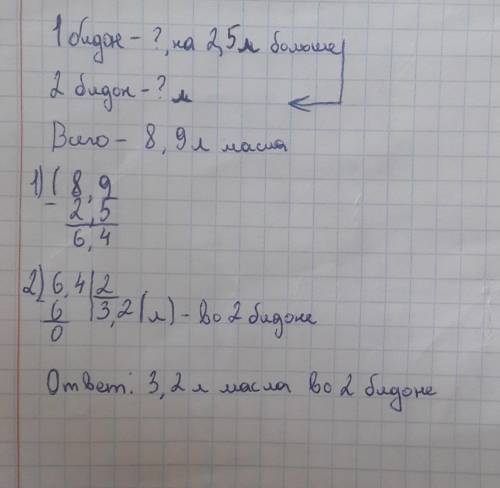 1 бидон - ?, на 2,5 л больше
2 бидон - ? л
Всего - 8,9 л масла
1) 8,9
- 2,5
6,4
2) 6,4 | 2
6 | 3,2 (л) - во 2 бидоне
0
Ответ: 3,2 л масла во 2 бидоне